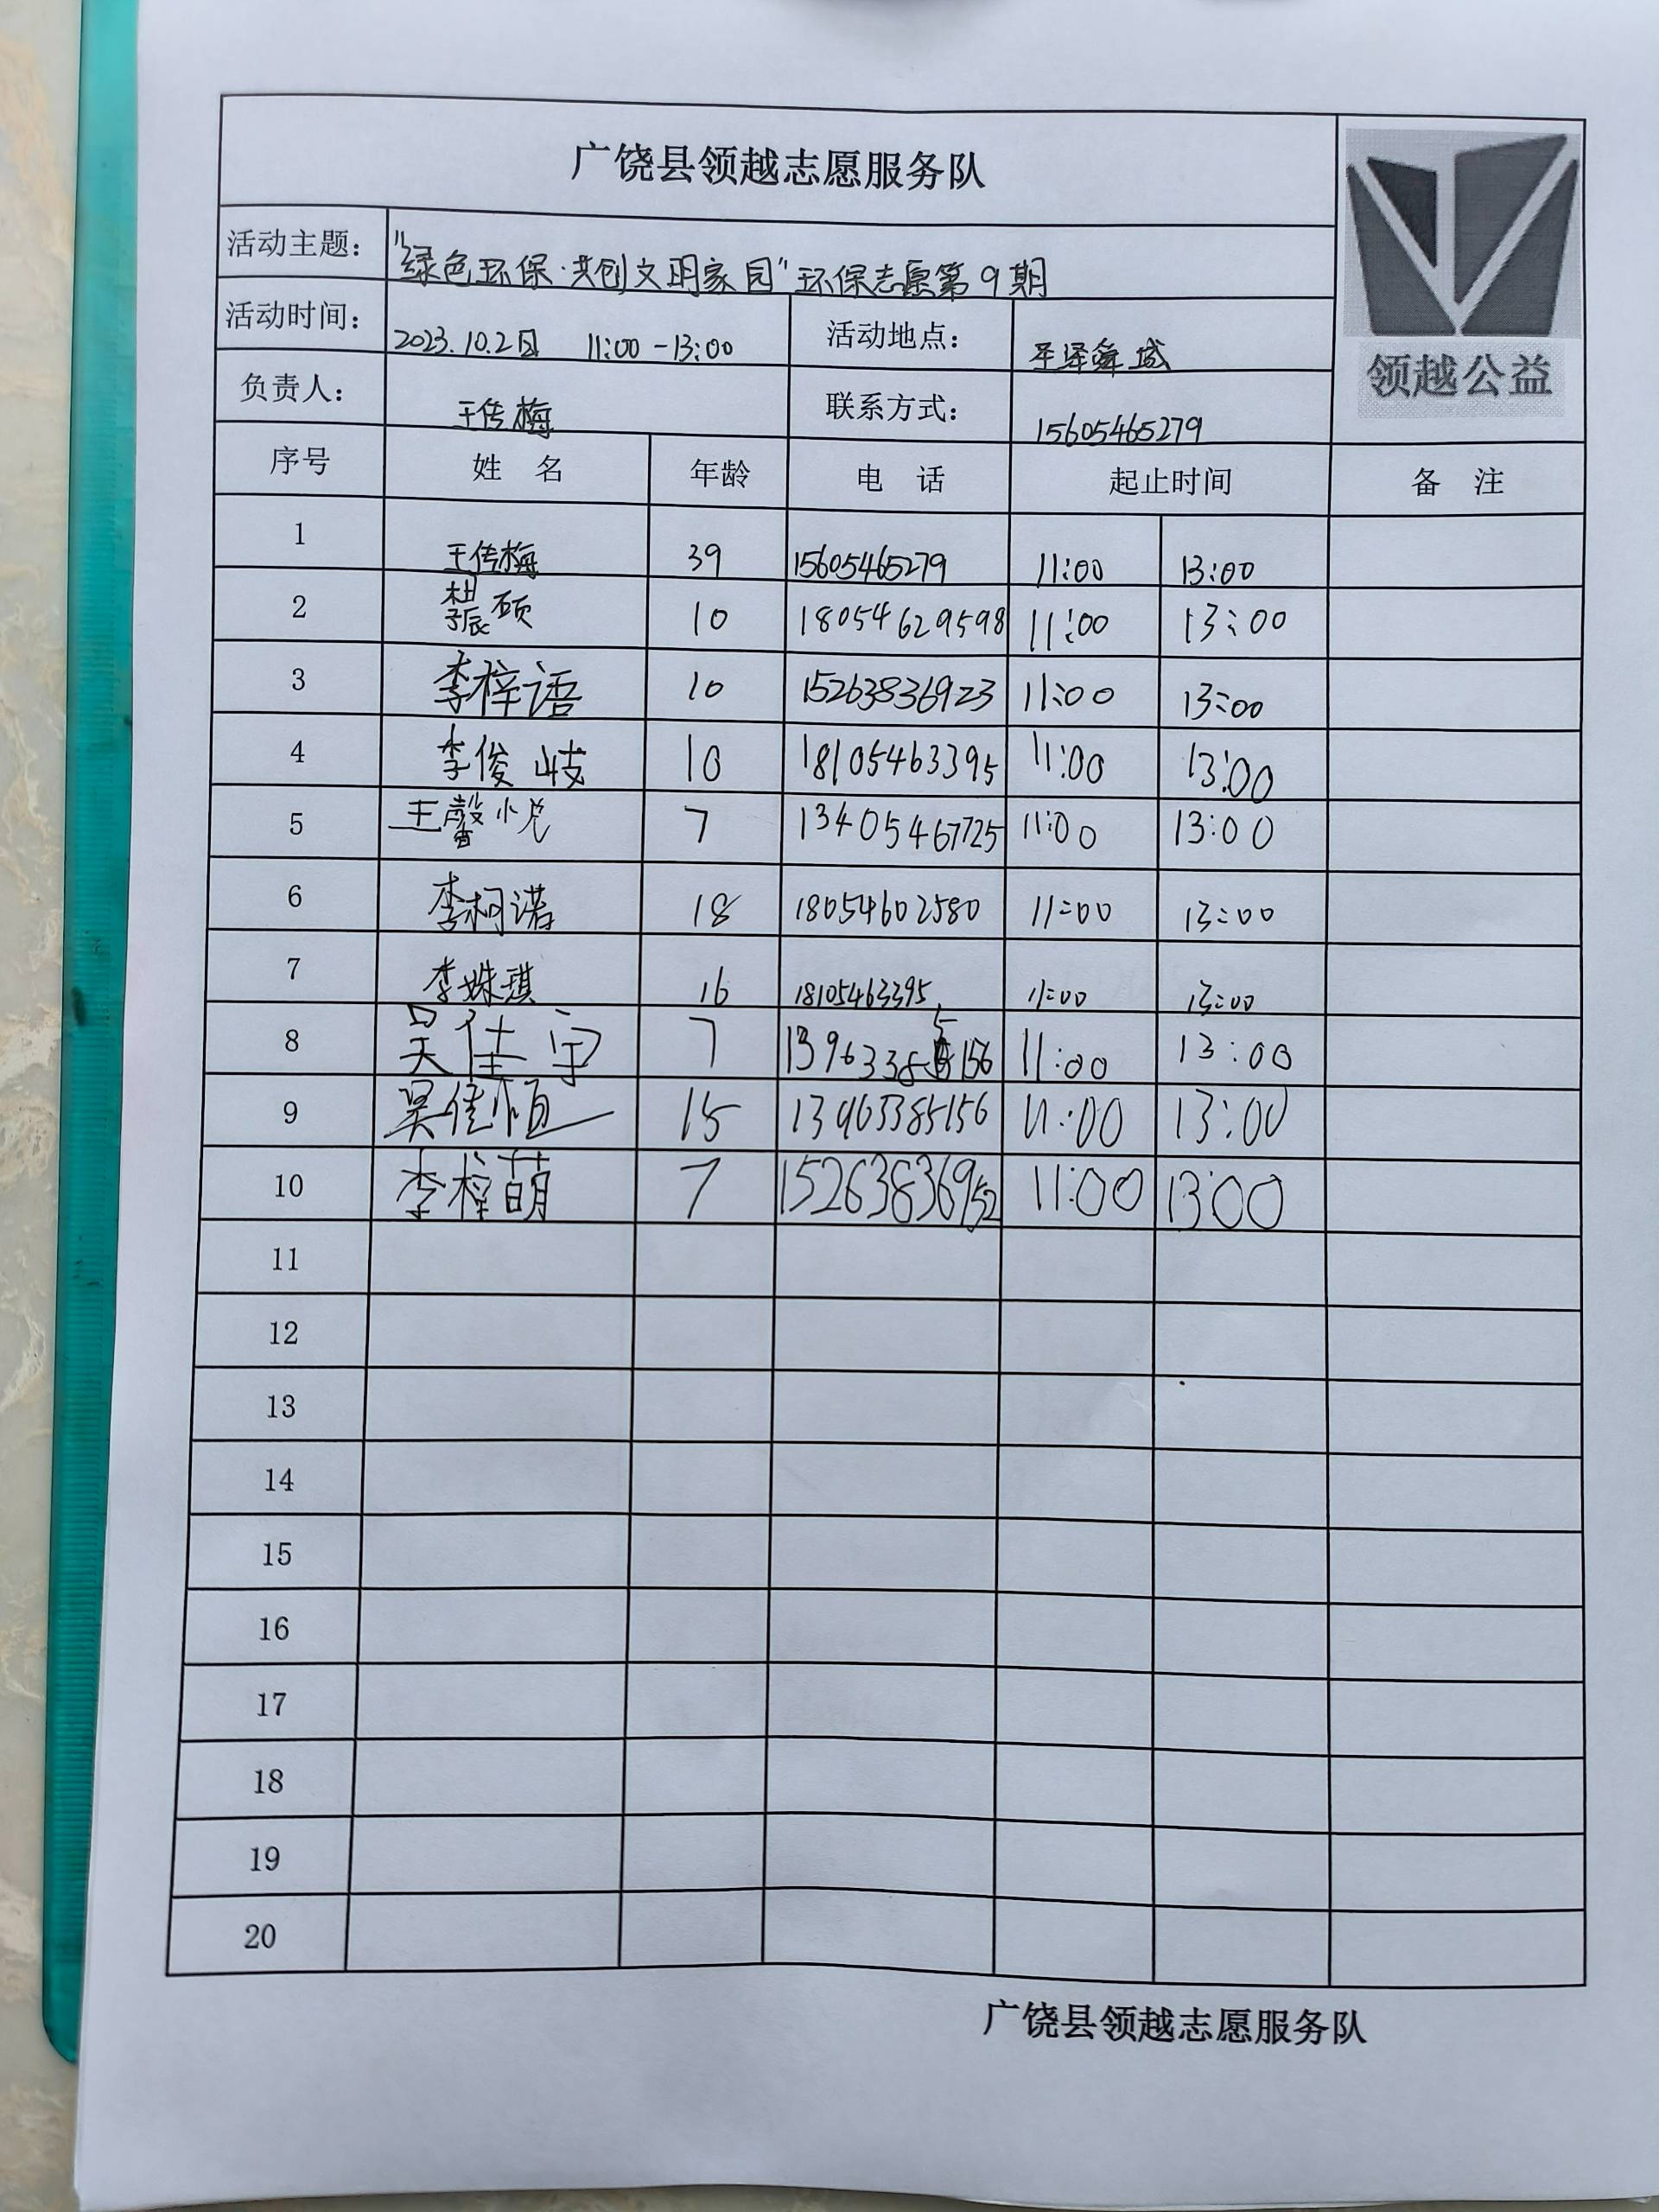 广饶县领越志愿服务队
活动主题： "绿色环保·共创文明家园"环保志愿第9期
活动时间： 2023.10.2日 11:00-13:00 活动地点： 圣泽舜城
领越公益
负责人： 王传梅 联系方式： 15605465279
序号 姓 名 年龄 电 话 起止时间 备 注
1 王传梅 39 15605465279 11:00 13:00
2 硕 10 18054629598 11:00 13:00
3 李梓语 10 15263836923 11:00 13:00
4 李俊岐 10 18105463395 11:00 13:00
5 王馨悦 7 13405467725 11:00 13:00
6 李柯诺 18 18054602580 11:00 13:00
7 李姝琪 16 18105463395 11:00 13:00
8 吴佳宇 7 13963385156 11:00 13:00
9 吴佳恒 15 13963385156 11:00 13:00
10 李梓萌 7 15263836952 11:00 13:00
11
12
13
14
15
16
17
18
19
20
广饶县领越志愿服务队